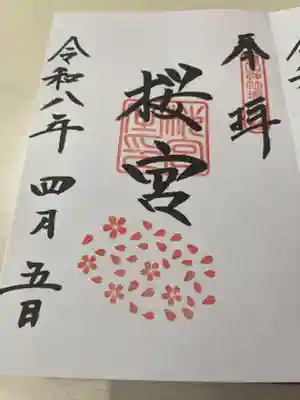 奉拝
桜宮
令和八年 四月 五日